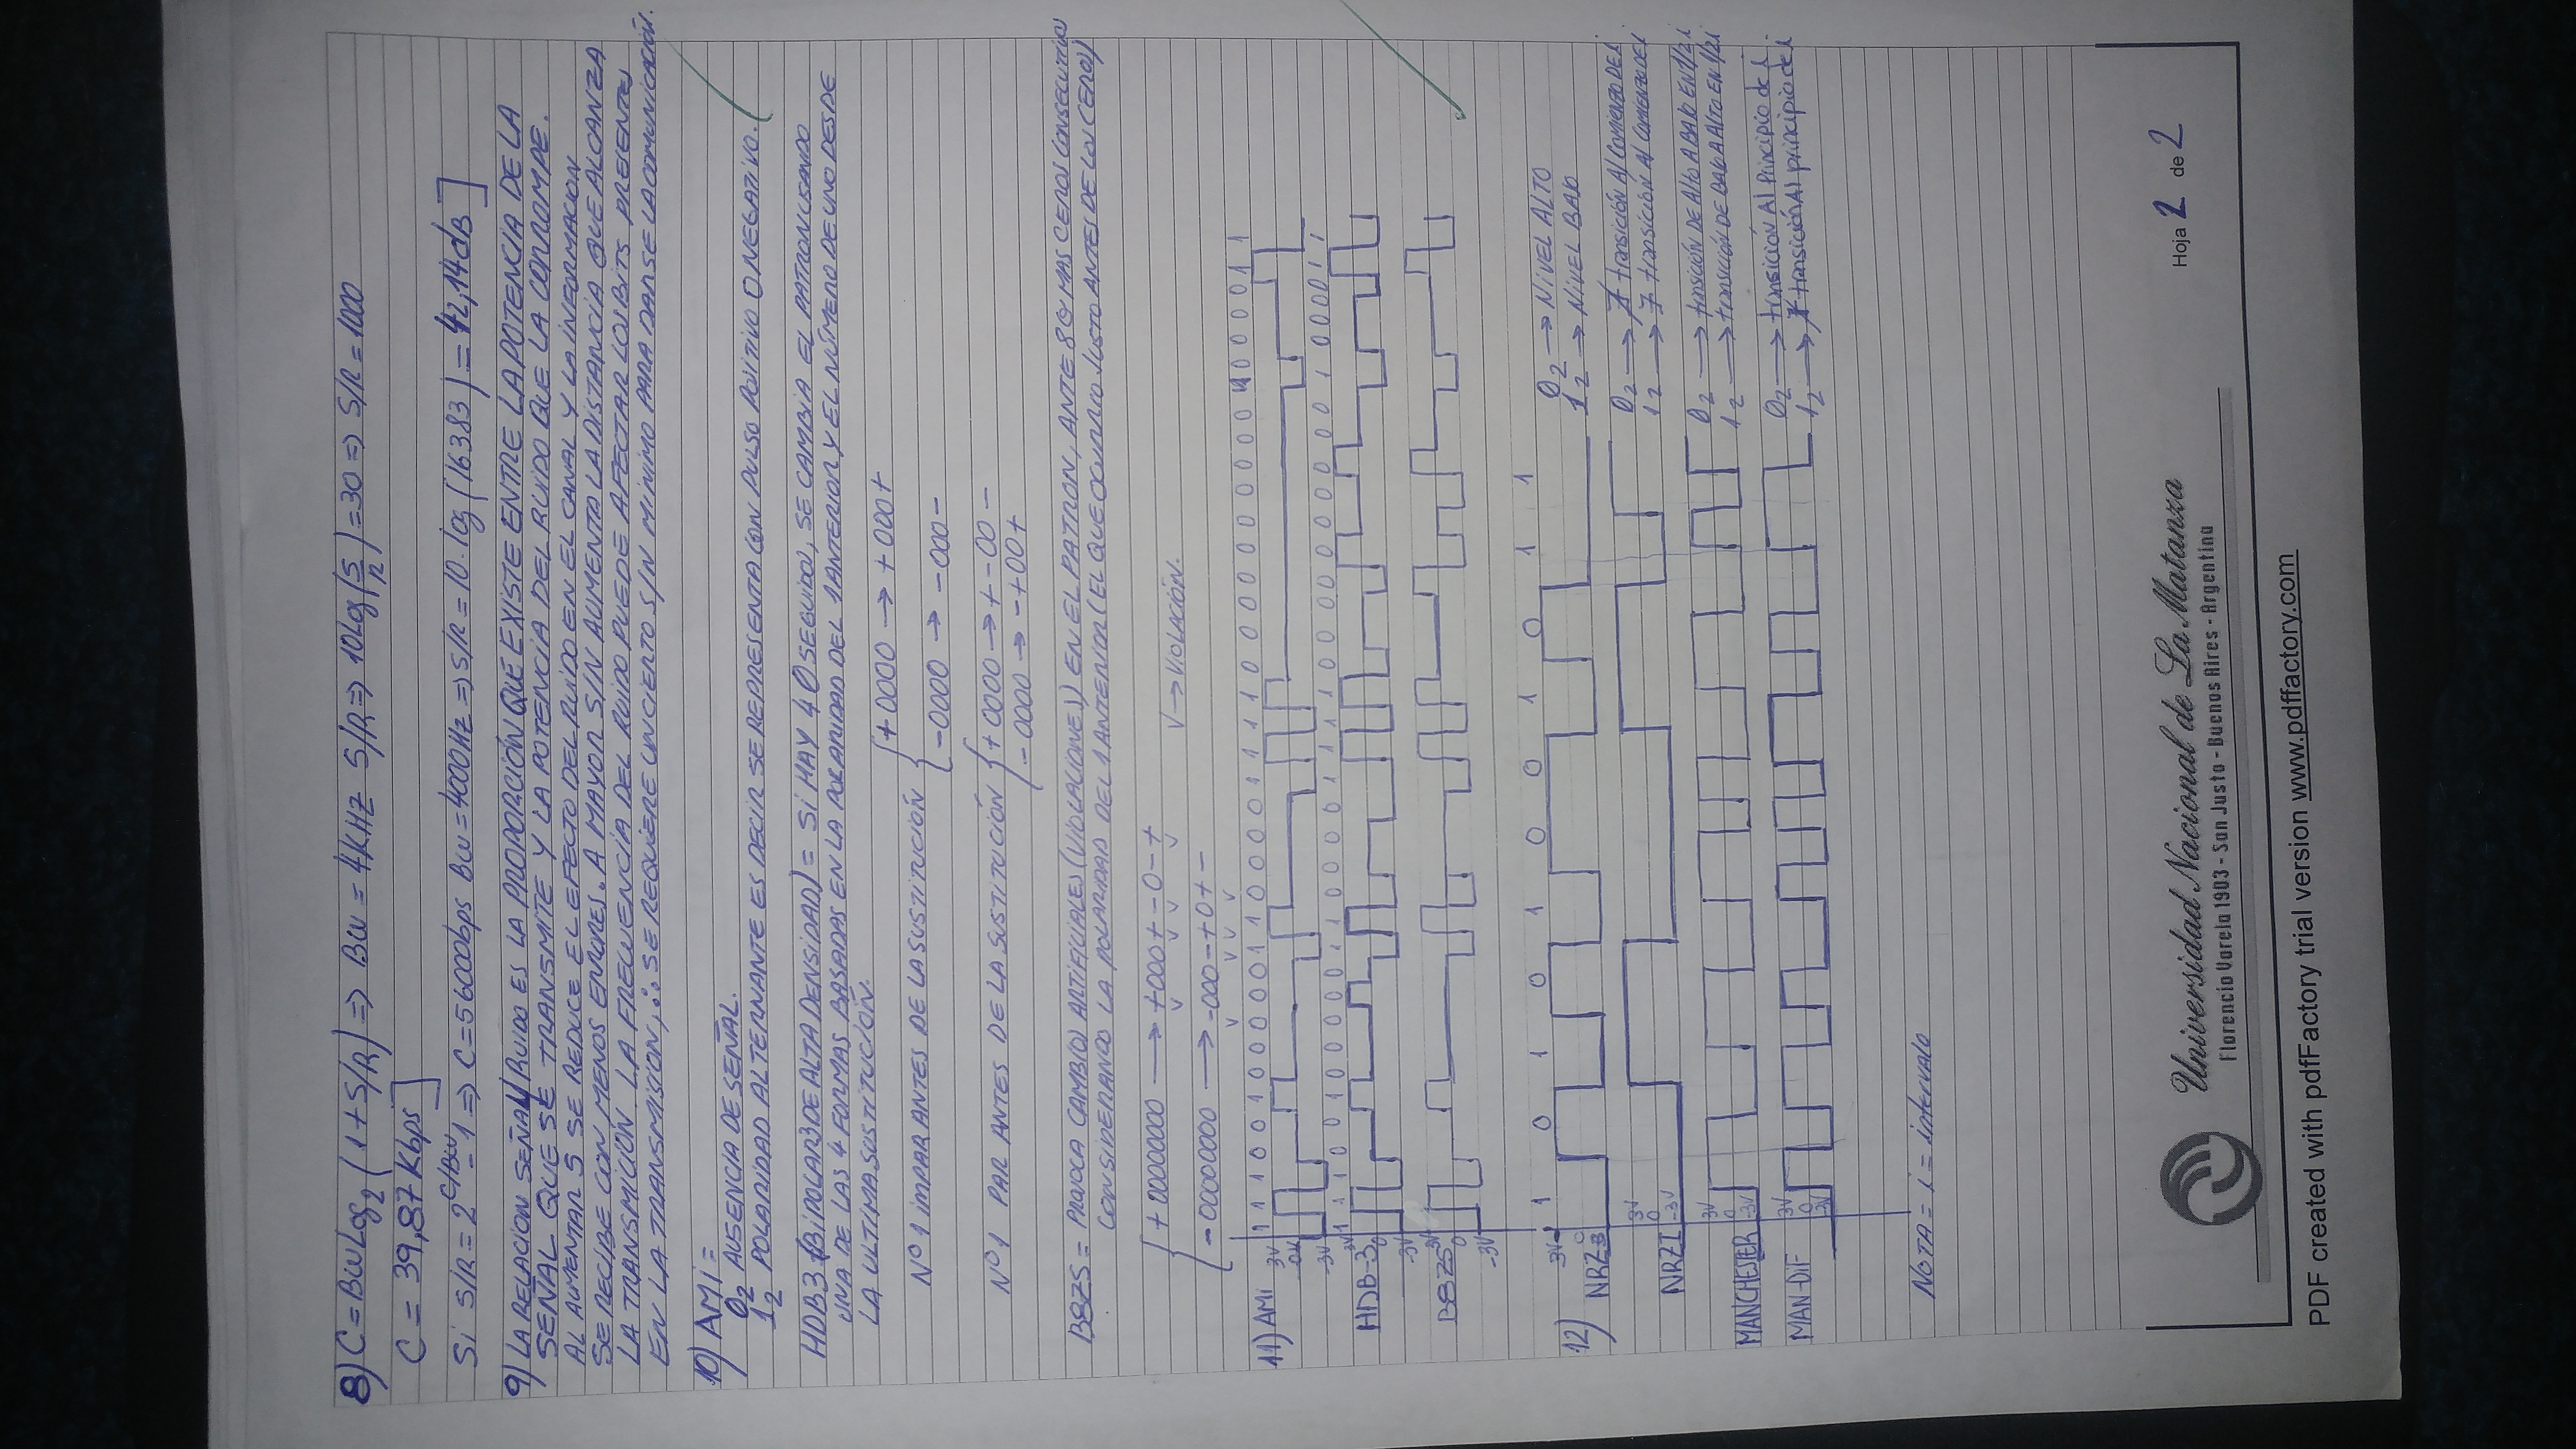 8) C = BW Log2 (1+S/R) => BW = 4KHZ S/R => 10Log(S/R) = 30 => S/R = 1000
C = 39,87 Kbps]
Si S/R = 2^C/BW - 1 => C=56000bps BW=4000Hz => S/R = 10.log(16383) = 42,14dB]
9) LA RELACION SEÑAL/RUIDO ES LA PROPORCIÓN QUE EXISTE ENTRE LA POTENCIA DE LA
SEÑAL QUE SE TRANSMITE Y LA POTENCIA DEL RUIDO QUE LA CORROMPE.
AL AUMENTAR S SE REDUCE EL EFECTO DEL RUIDO EN EL CANAL Y LA INFORMACION
SE RECIBE CON MENOS ERRORES. A MAYOR S/N AUMENTA LA DISTANCIA QUE ALCANZA
LA TRANSMICIÓN. LA FRECUENCIA DEL RUIDO PUEDE AFECTAR LOS BITS PRESENTES
EN LA TRANSMISION, ∴ SE REQUIERE UN CIERTO S/N MÍNIMO PARA DARSE LA COMUNICACIÓN.
10) AMi =
0₂ AUSENCIA DE SEÑAL.
1₂ POLARIDAD ALTERNANTE ES DECIR SE REPRESENTA CON PULSO POSITIVO O NEGATIVO.
HDB3 (BiPOLAR 3 DE ALTA DENSIDAD) = Si HAY 4 0 SEGUIDOS, SE CAMBIA EL PATRON USANDO
UNA DE LAS 4 FORMAS BASADAS EN LA POLARIDAD DEL 1 ANTERIOR Y EL NÚMERO DE UNO DESDE
LA ULTIMA SUSTITUCIÓN.
+0000 → +000+
Nº 1 IMPAR ANTES DE LA SUSTITUCIÓN
-0000 → -000-
Nº 1 PAR ANTES DE LA SUSTITUCIÓN +0000 → +-00-
-0000 → -+00+
B8ZS = PROVOCA CAMBIOS ARTIFICIALES (VIOLACIONES) EN EL PATRON, ANTE 8 O MAS CEROS CONSECUTIVOS
CONSIDERANDO LA POLARIDAD DEL 1 ANTERIOR (EL QUE OCURRIO JUSTO ANTES DE LOS CEROS)
+00000000 → +000+-0-+
V V V V V → VIOLACIÓN.
-00000000 → -000-+0+-
V V V V
11) AMi 1 1 1 0 0 1 0 0 0 0 0 1 1 0 0 0 0 1 1 1 1 0 0 0 0 0 0 0 0 0 0 1 0 0 0 0 1 1
3V
0V
-3V
1 1 1 0 0 1 0 0 0 0 0 1 1 0 0 0 0 1 1 1 1 0 0 0 0 0 0 0 0 0 0 1 0 0 0 0 1 1
HDB-3 3V
0
-3V
B8ZS 3V
0
-3V
1 0 1 0 1 0 0 1 0 1 1
12) 3V
0 0₂ → NiVEL ALTO
NRZ 1₂ → NiVEL BAJO
3V 0₂ → ∄ transición Al COMIENZO DE i
0
NRZI -3V 1₂ → ∃ transición Al COMIENZO DE i
3V 0₂ → transición DE Alto A BAJO EN 1/2 i
0
MANCHESTER -3V 1₂ → transición DE BAJO A Alto EN 1/2 i
3V 0₂ → transición Al Principio de i
MAN-DiF 0 1₂ → ∄ transición Al principio de i
-3V
NOTA = i = intervalo
Universidad Nacional de La Matanza
Florencio Varela 1903 - San Justo - Buenos Aires - Argentina
Hoja 2 de 2
PDF created with pdfFactory trial version www.pdffactory.com